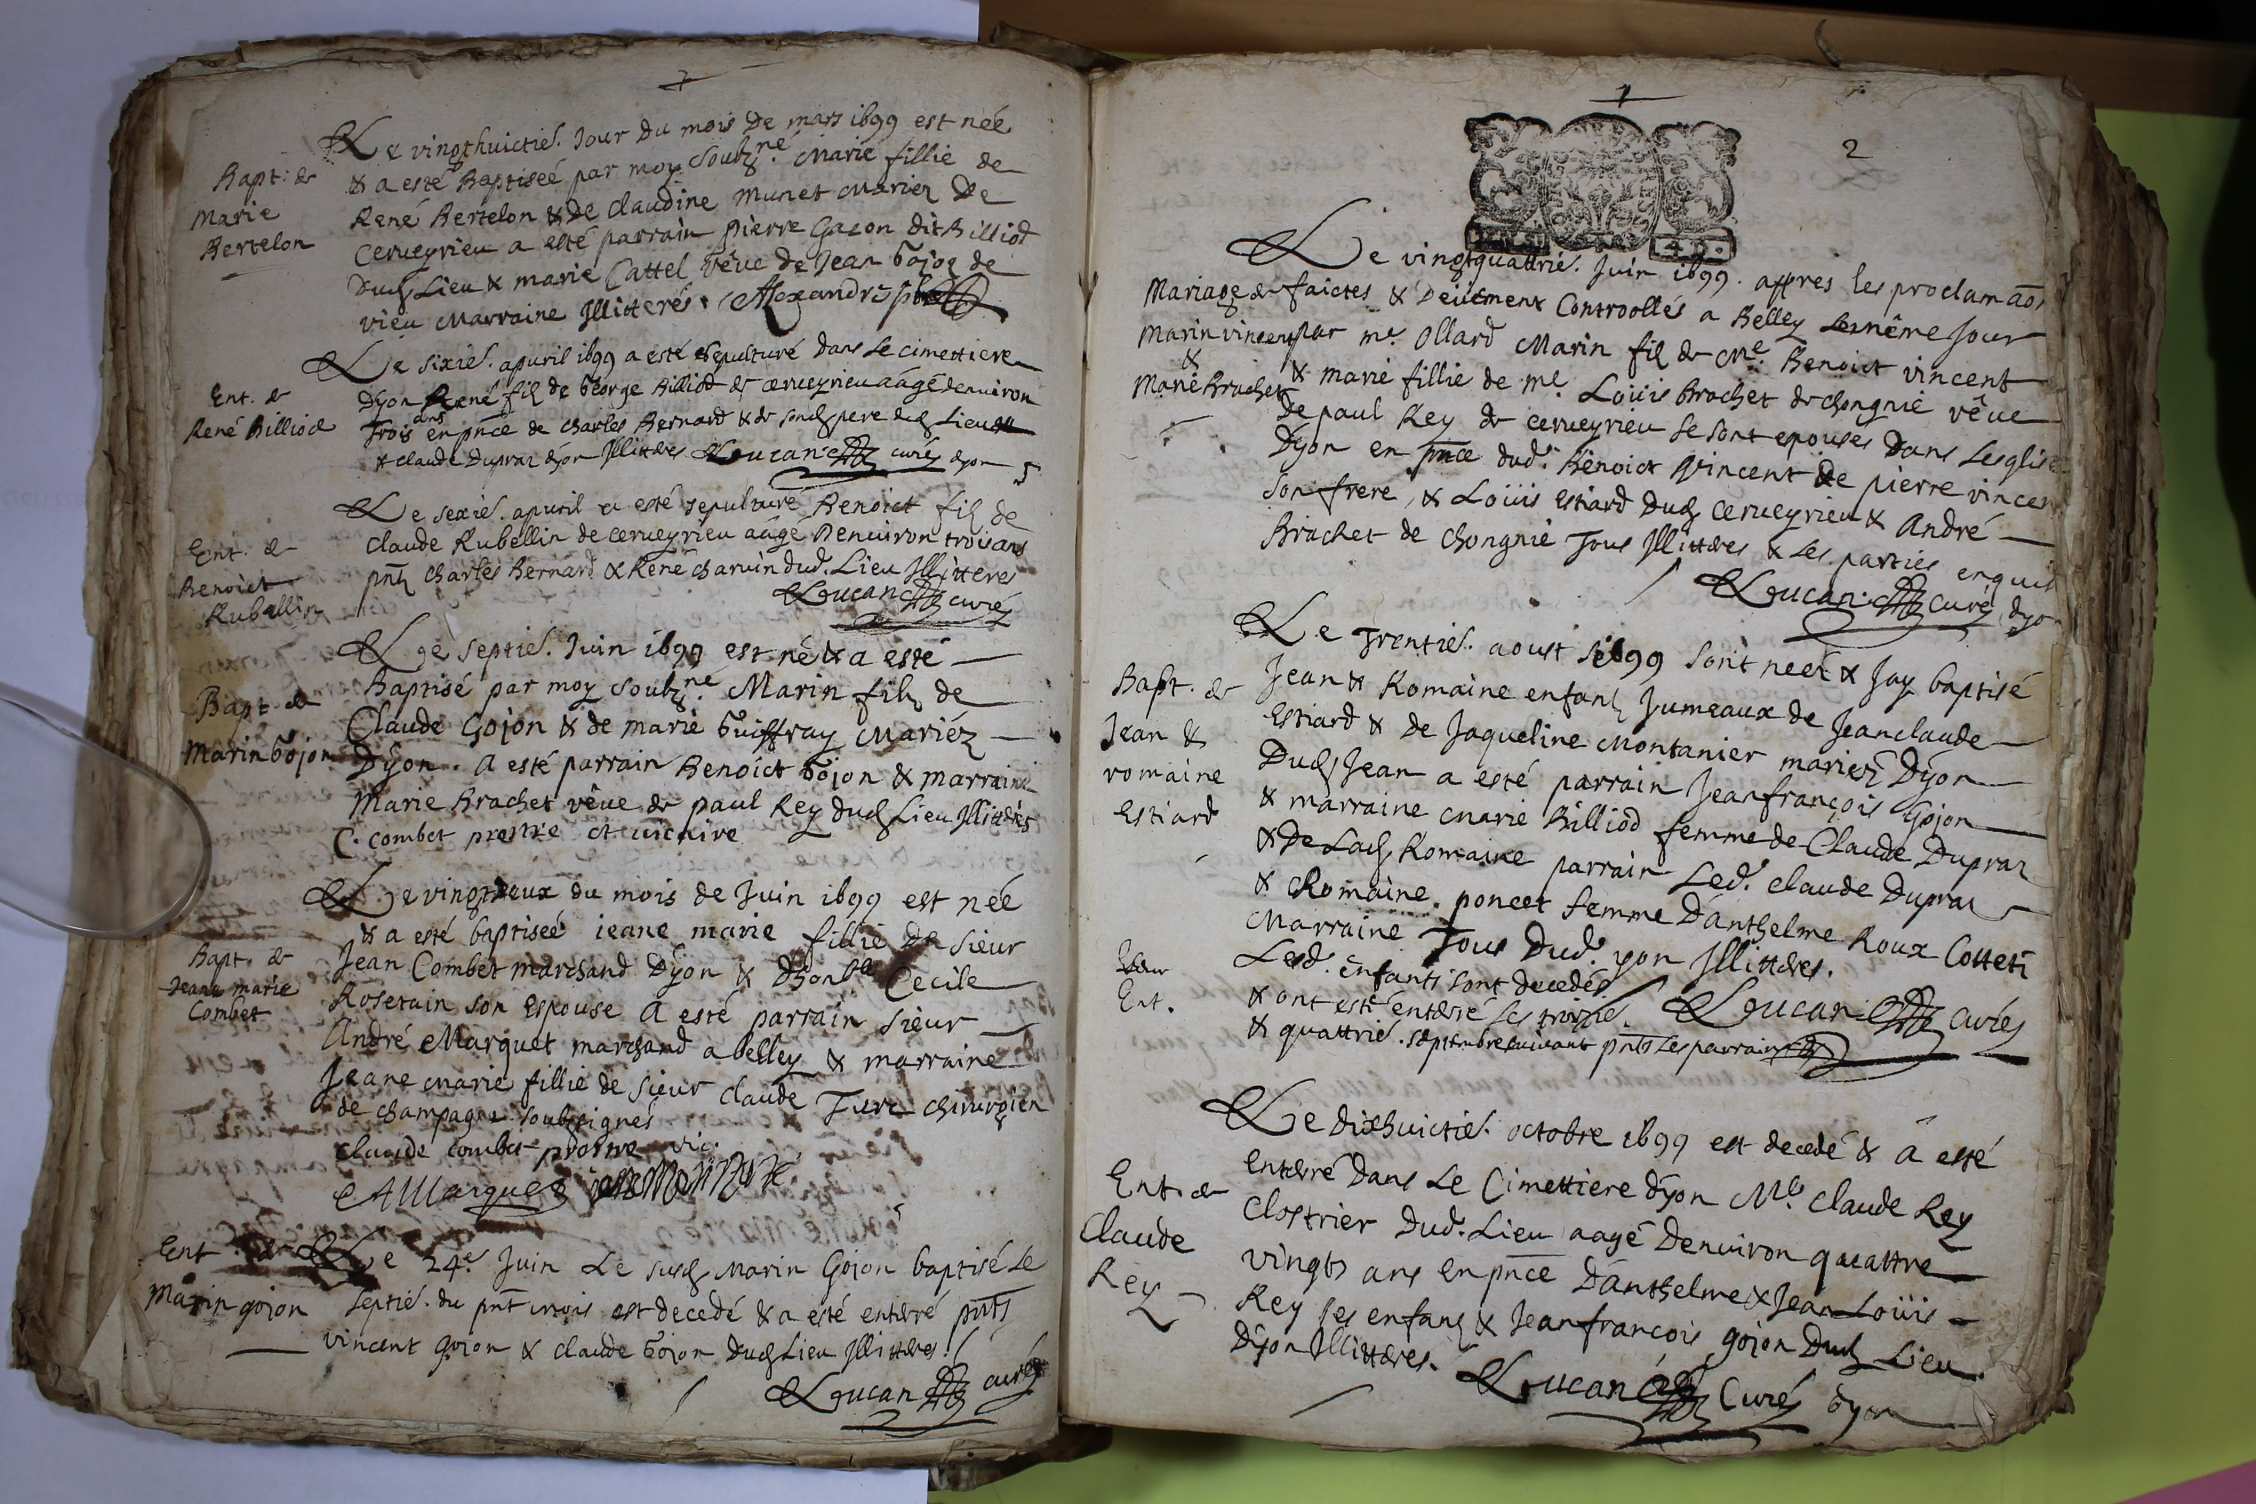 Bapt: de
Marie
Bertelon
Le vingthuictie. Jour Du mois De mars 1699 est née
& a esté Baptiseé par moy Soubz.ne Marie fillie de
René Bertelon & De Claudine Munet Mariez De
Cerveyrieu a esté parrain Pierre Gacon dit Billiod
Dud Lieu & marie Cattel vêve De Jean Gojoz de
vieu Marraine Jllitterés. Alexandre
Ent. de
René Billiod
Le sixie. apvril 1699 a esté Sepulturé dans Le cimettiere
Dyon René fil de George Billiod de cerveyrieu aâgé denviron
Trois ans en pnce de charles Bernard & de sond pere dud Lieu
& claude Dupraz dyon Jllittéres Loucan curé dyon
Ent. de
Benoict
Rubellin
Le sexie. apvril a esté sepulturé Benoict fil de
Claude Rubellin de cerveyrieu aâgé Denviron trois ans
pnt charles Bernard & René charvin dud. Lieu Jllitteres
Loucan curé
Bapt de
Marin Gojon
Le septie. Juin 1699 est né & a esté
Baptisé par moy Soubz.ne Marin filz de
Claude Gojon & de marie Guiffray Mariéz
Dyon. A esté parrain Benoict Gojon & marraine
Marie Brachet vêve de paul Rey dud Lieu Jllittérés
C. combet prestre et vicaire
Bapt. de
Jeane marie
Combet
Le vingtdeux du mois de Juin 1699 est née
& a esté baptiseé ieane marie fillie De sieur
Jean Combet marchand Dyon & Dhon.ble Cecile
Rosetain son Espouse A esté parrain Sieur
André Marquet marchand a belley & marraine
Jeane marie fillie de Sieur Claude Turc chirurgien
de champagne soubsignés
Claude combet prestre vic.
A Marquet
Ent de
Marin gojon
Le 24.e Juin Le susd Marin Gojon baptisé Le
septie. du pnt mois est decedé & a esté enterré pnts
vincent gojon & claude Gojon dud Lieu Jllittéres.
Loucan curé
2
Mariage de
Marin vincent
&
Marie Brachet
Le vingtquattrie. Juin 1699. appres les proclamãos
faictes & Deüement Controollés a Belley Le même Jour
par m.e Ollard Marin fil de M.e Benoict vincent
& marie fillie de m.e Loüis Brachet de chongnie vêve
De paul Rey de cerveyrieu se sont epouses Dans Lesglise
Dyon en pnce dud. Benoict Vincent De pierre vincent
son frere, & Loüis Estiard Dud Cerveyrieu & André
Brachet de Chongnie Tous Jllittéres & Les parties enquis
Loucan curé dyon
Bapt. de
Jean &
romaine
Estiard
Le Trentie. aoust 1699 sont neéz & Jay baptisé
Jean & Romaine enfant Jumeaux de Jeanclaude
Estiard & de Jaqueline Montanier mariez Dyon
Dud Jean a esté parrain Jeanfrançois Gojon
& marraine Marie Billiod femme de Claude Dupraz
& De Lad Romaine parrain Led. Claude Dupraz
& Romaine. poncet femme Danthelme Roux Cotteti
Marraine Tous Dud. yon Jllittéres.
Ent.
Lesd. enfants sont decedés
& ont esté enterré Les troizie.
& quattrie. septembre suivant pnts Les parrains
Loucan curé
Ent. de
Claude
Rey
Le Dixhuictie. octobre 1699 est decedé & â esté
Enterré Dans Le Cimettiere dyon M.e Claude Rey
Clostrier Dud. Lieu aagé Denviron quattre
vingts ans En pnce Danthelme & Jean Loüis
Rey ses enfans & Jeanfrancois gojon Dud Lieu
Dyon Jllittéres.
Loucan Curé dyon